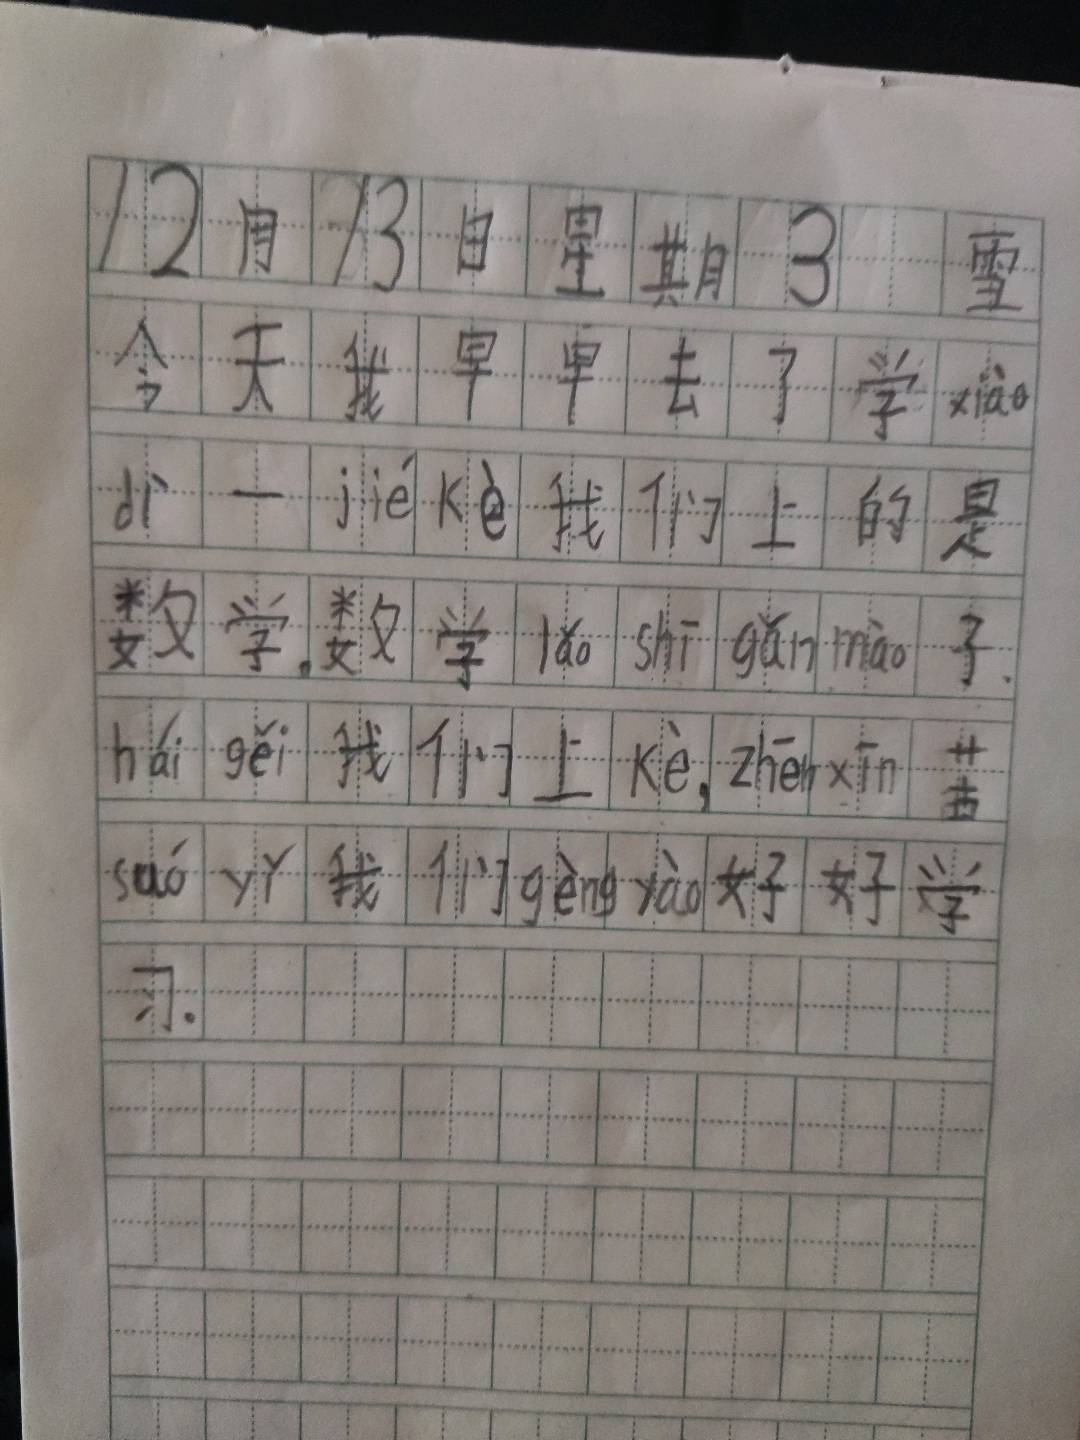 12月13日星期3 雪
今天我早早去了学xiào
dì一jiékè我们上的是
数学.数学lǎoshīgǎnmào了.
háigěi我们上kè,zhēnxīn苦
suóyǐ我们gèngyào好好学
习.